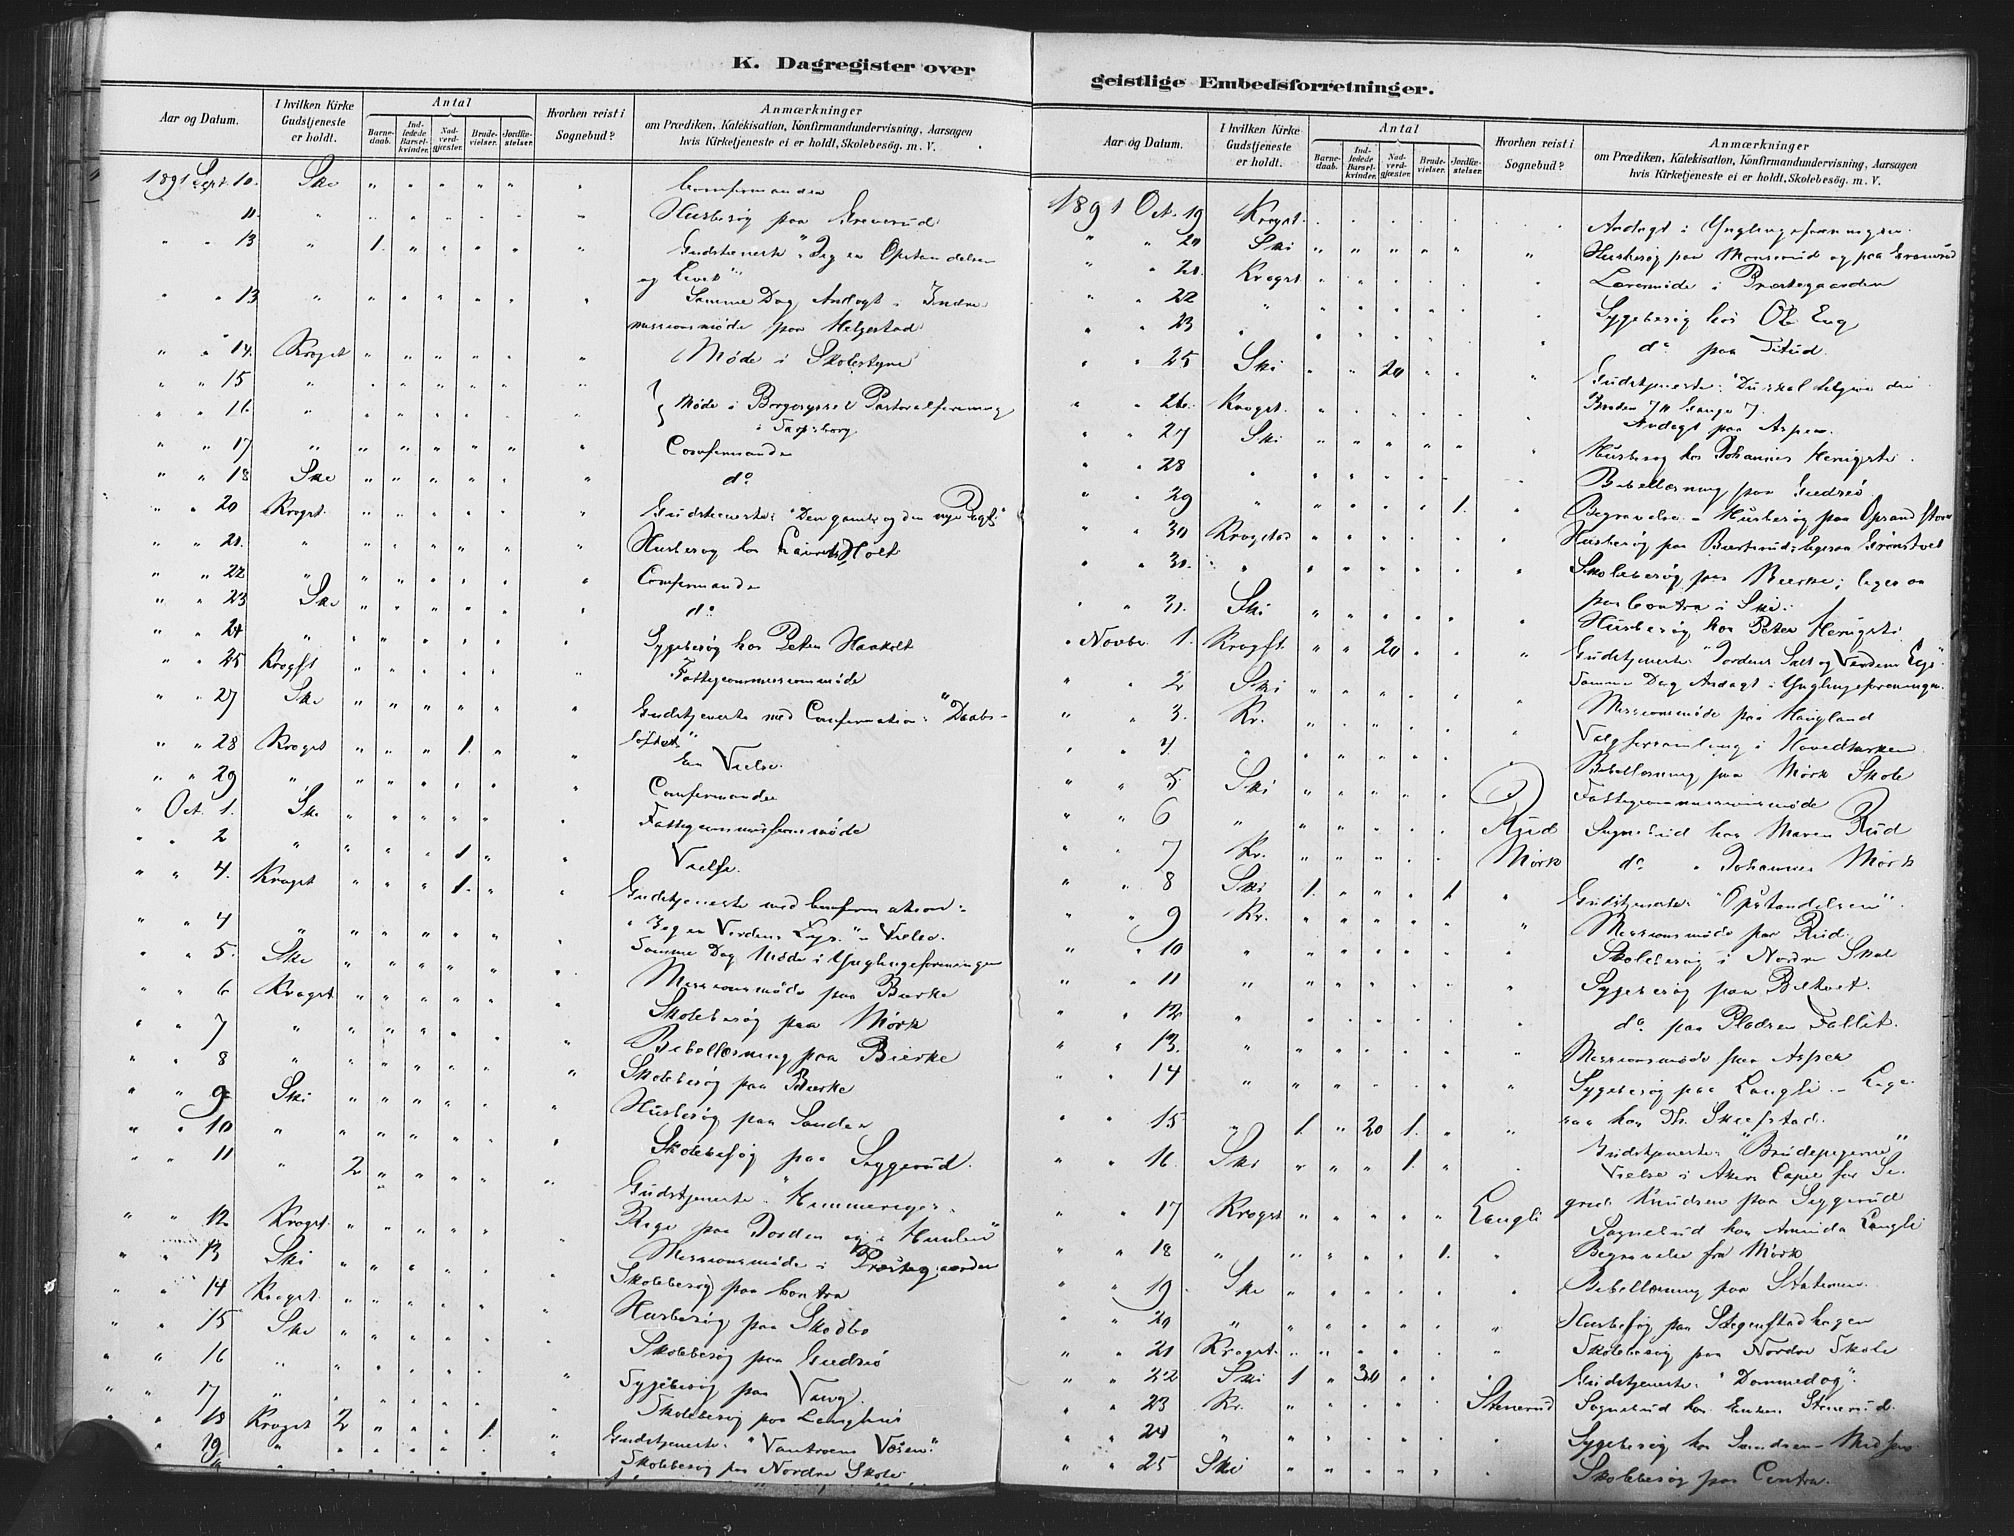 K. Dagregister over
Aar og Datum.
I hvilken Kirke Gudstjeneste er holdt.
Antal
Barnedaab.
Indledede Barselkvinder.
Nadverdgjæster.
Brudevielser.
Jordfæstelser.
Hvorhen reist i Sognebud?
Anmærkninger
om Prædiken, Katekisation, Konfirmandundervisning, Aarsagen
hvis Kirketjeneste ei er holdt, Skolebesög. m. V.
1891 Sept. 10. Ski " " " " " " Comfermander
11. " " " " " " Husbesøg paa Greverud
" " 13 " 1. " " " " " Gudstieneste "Jeg er Opstandelsen
og Livet"
" " 13 " " " " " " " Samme Dag Andagt i Indre
missionsmøde paa Helgestad
" " 14. Krogst " " " " " " Møde i Skolestyre
" " 15 " " " " " " "
" " 16 " " " " " " " Møde i Borgesyssel Pastoralforening
i Sarpsborg
" " 17 " " " " " " " Comfermander
" " 18 Ski " " " " " " do
" " 20 Krogst. " " " " " " Gudstieneste: "Den gamle og den nye Pagt"
" " 21. " " " " " " " Husbesøg hos Holt
" " 22 " " " " " " " Comfermander
" " 23 Ski " " " " " " do
" " 24 " " " " " " Sygebesøg hos Peter Haakolt
" " 25 Krogst " " " " " " Fattigcommissionsmøde
" " 27 Ski " " " " " " Gudstjeneste med Comfermation: "Daabs-
løftet"
" " 28 Krogst " " " 1. " " En Vielse.
" " 29 " " " " " " " Comfermander
" Oct. 1. Ski " " " " " " Fattigcommissionsmøde
" " 2 " " " " 1 " " Vielse.
" " 4. Krogst " " " 1. " " Gudstjeneste med Comfermation:
"Jeg er Verdens Lys." - Vielse.
" " 4 " " " " " " " Samme Dag Møde i Ynglingeforeningen
" " 5. Ski " " " " " " Missionsmøde paa Bierke
" " 6 Krogst " " " " " " Skolebesøg paa Mørk
" " 7 " " " " " " " Bibellæsning paa Bierke
" " 8 " " " " " " " Skolebesøg paa Bierke
" " 9 Ski " " " " " " Husbesøg paa Sander
" " 10 " " " " " " " Skolebesøg paa Siggerud.
" " 11 " 2 " " " " " Gudstjeneste: "Himmeriges
Rige paa Jorden og i Himlen"
" " 12 Krogst. " " " " " " Missionsmøde i Præstegaarden
" " 13 Ski " " " " " " Skolebesøg paa Contra
" " 14 Krogst. " " " " " " Husbesøg paa Skodbo
" " 15 Ski " " " " " " Skolebesøg paa Gudsiø
" " 16 " " " " " " " Sygebesøg paa Vevg.
" " 17 " " " " " " " Skolebesøg paa Langhus
" " 18 Krogst 2 " " " 1. " Gudstjeneste: "Vantroens Væsen."
" 19 " " " " " " " Skolebesøg paa Nordre Skole
geistlige Embedsforretninger.
Aar og Datum.
I hvilken Kirke Gudstjeneste er holdt.
Antal
Barnedaab.
Indledede Barselkvinder.
Nadverdgjæster.
Brudevielser.
Jordfæstelser.
Hvorhen reist i Sognebud?
Anmærkninger
om Prædiken, Katekisation, Konfirmandundervisning, Aarsagen
hvis Kirketjeneste ei er holdt, Skolebesög. m. V.
1891 Oct. 19 Krogst. " " " " " " Andagt i Ynglingeforeningen
" " 20 Ski " " " " " " Husbesøg paa Monserud og paa Grønerud
" " 21. Krogst " " " " " " Læremøde i Præstegaarden
" " 22 " " " " " " " Sygebesøg hos Ole Eng
" " 23 " " " " " " " do paa
" " 25 Ski " " 20 " " " Gudstjeneste: "Du skal tilgive din
Broder 70 Gange 7.
" " 26. Krogst. " " " " " " Andagt paa Aspen.
" " 27 Ski " " " " " " Husbesøg hos Johannes
" " 28 " " " " " " " Bibellæsning paa Gudsiø.
" " 29 " " " " " 1. " Begravelse - Husbesøg paa
" " 30 Krogstad " " " " " " Husbesøg paa ligesaa
" " 31. " " " " " " " Skolebesøg paa Bierke; ligesaa
paa Contra i Ski.
" " 31. Ski " " " " " " Husbesøg hos Peter
" Novbr 1. Krogst. " " 20 " " " Gudstjeneste: "Jordens Salt og Verdens Lys".
Samme Dag Andagt i Ynglingeforeningen.
" " 2 Ski " " " " " " Missionsmøde paa Haugland
" " 3. Kr. " " " " " " Valgforsamling i Hovedkirken
" " 4. " " " " " " " Bibellæsning paa Mørk Skole
" " 5 Ski " " " " " " Fattigcommissionsmøde
" " 6 " " " " " " Rud Sognebud hos Maren Rud
" " 7 Kr. " " " " " Mørk do " Johannes Mørk
" " 8 Ski 1. " " " 1 " Gudstjeneste: "Opstandelsen".
" " 9 Kr. " " " " " " Missionsmøde paa Rud.
" " 10 " " " " " " " Skolebesøg i Nordre Skole
" " 11 " " " " " " " Sygebesøg paa
" " 12 " " " " " " " do paa Pladsen Fallit.
" " 13. " " " " " " " Missionsmøde paa Aspen
" " 14 " " " " " " " Sygebesøg paa Langli - Lige-
saa hos Th.
" " 15 " 1. " 20 1. " " Gudstjeneste: "Brudepigerne"
" " 16. Ski " " " 1. " " Vielse i Akers Capel for Si-
grid Knudsen paa Siggerud
" " 17 Krogst " " " " " Langli Sognebud hos Langli
" " 18 " " " " " 1. " Begravelse fra Mørk
" " 19. Ski " " " " " " Bibellæsning paa Stationen.
" " 20 " " " " " " " Husbesøg paa
" " 21 Krogst. " " " " " " Skolebesøg paa Nordre Skole
" " 22 Ski 1 " 30 " " " Gudstjeneste: "Dommedag"
" " 23 Kr. " " " " " Stenerud Sognebud hos Enken Stenerud.
" " 24 " " " " " " " Sygebesøg hos
" " 25 Ski " " " " " " Skolebesøg paa Contra.